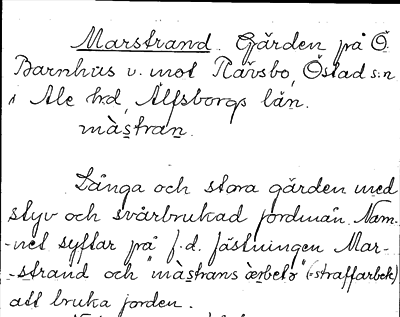 Marstrand. Gärden på Ö.
Barnhus v. mot Rävsbo, Östad s:n
i Ale hd, Älfsborgs län.
màs̱tran̠.
Långa och stora gärden med
styv och svårbrukad jordmån. Nam-
-net syftar på f.d. fästningen Mar-
-strand och "màs̱trans
(-straffarbete)
att bruka jorden.